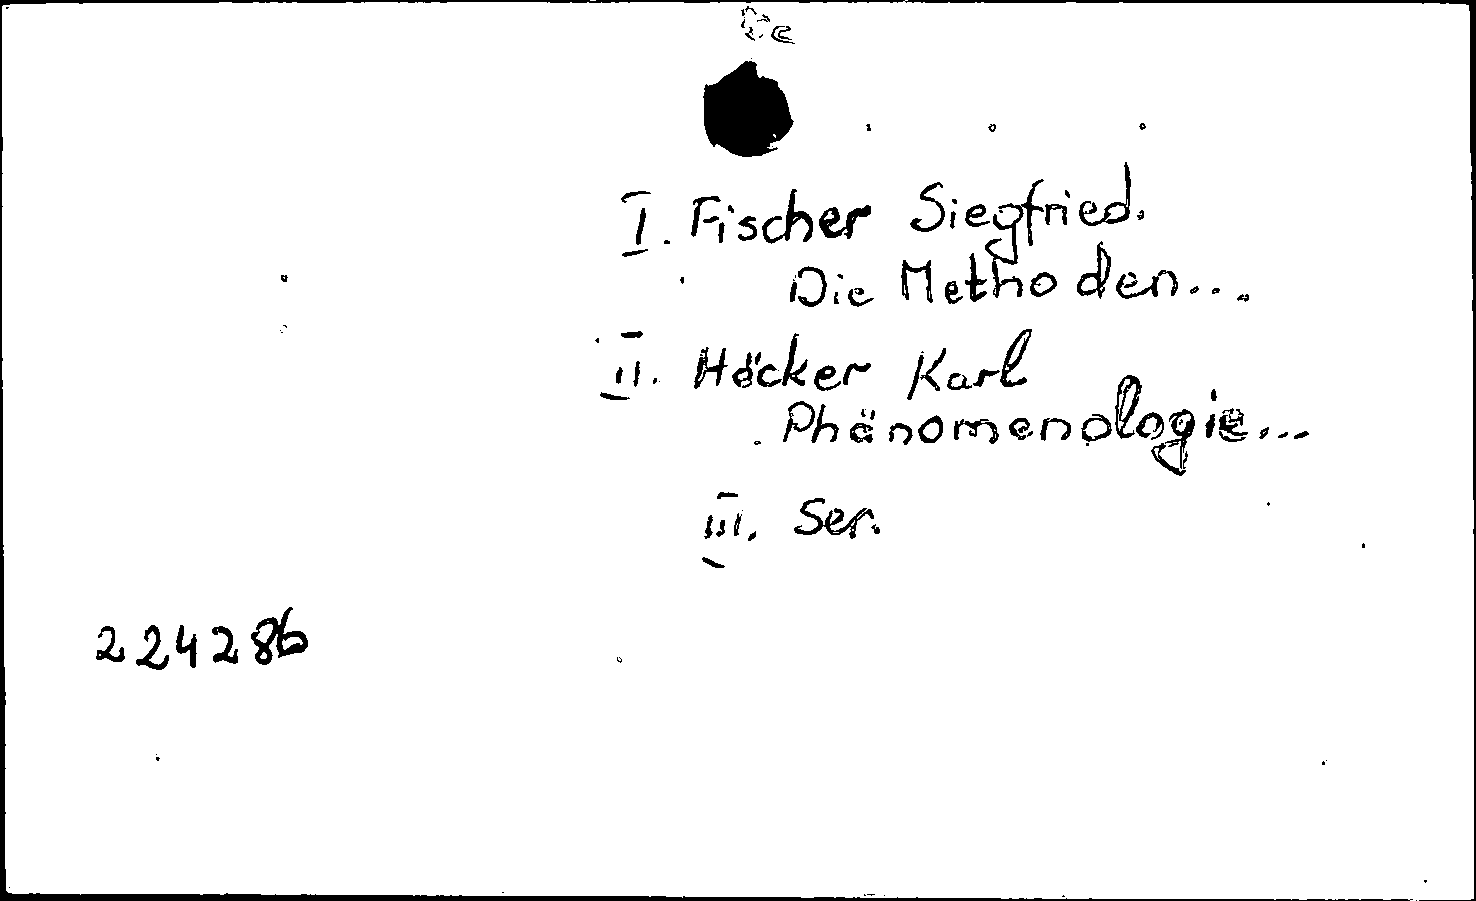 I. Fischer Siegfried.
Die Methoden...
II. Höcker Karl
Phänomenologie...
III. Ser.
224286